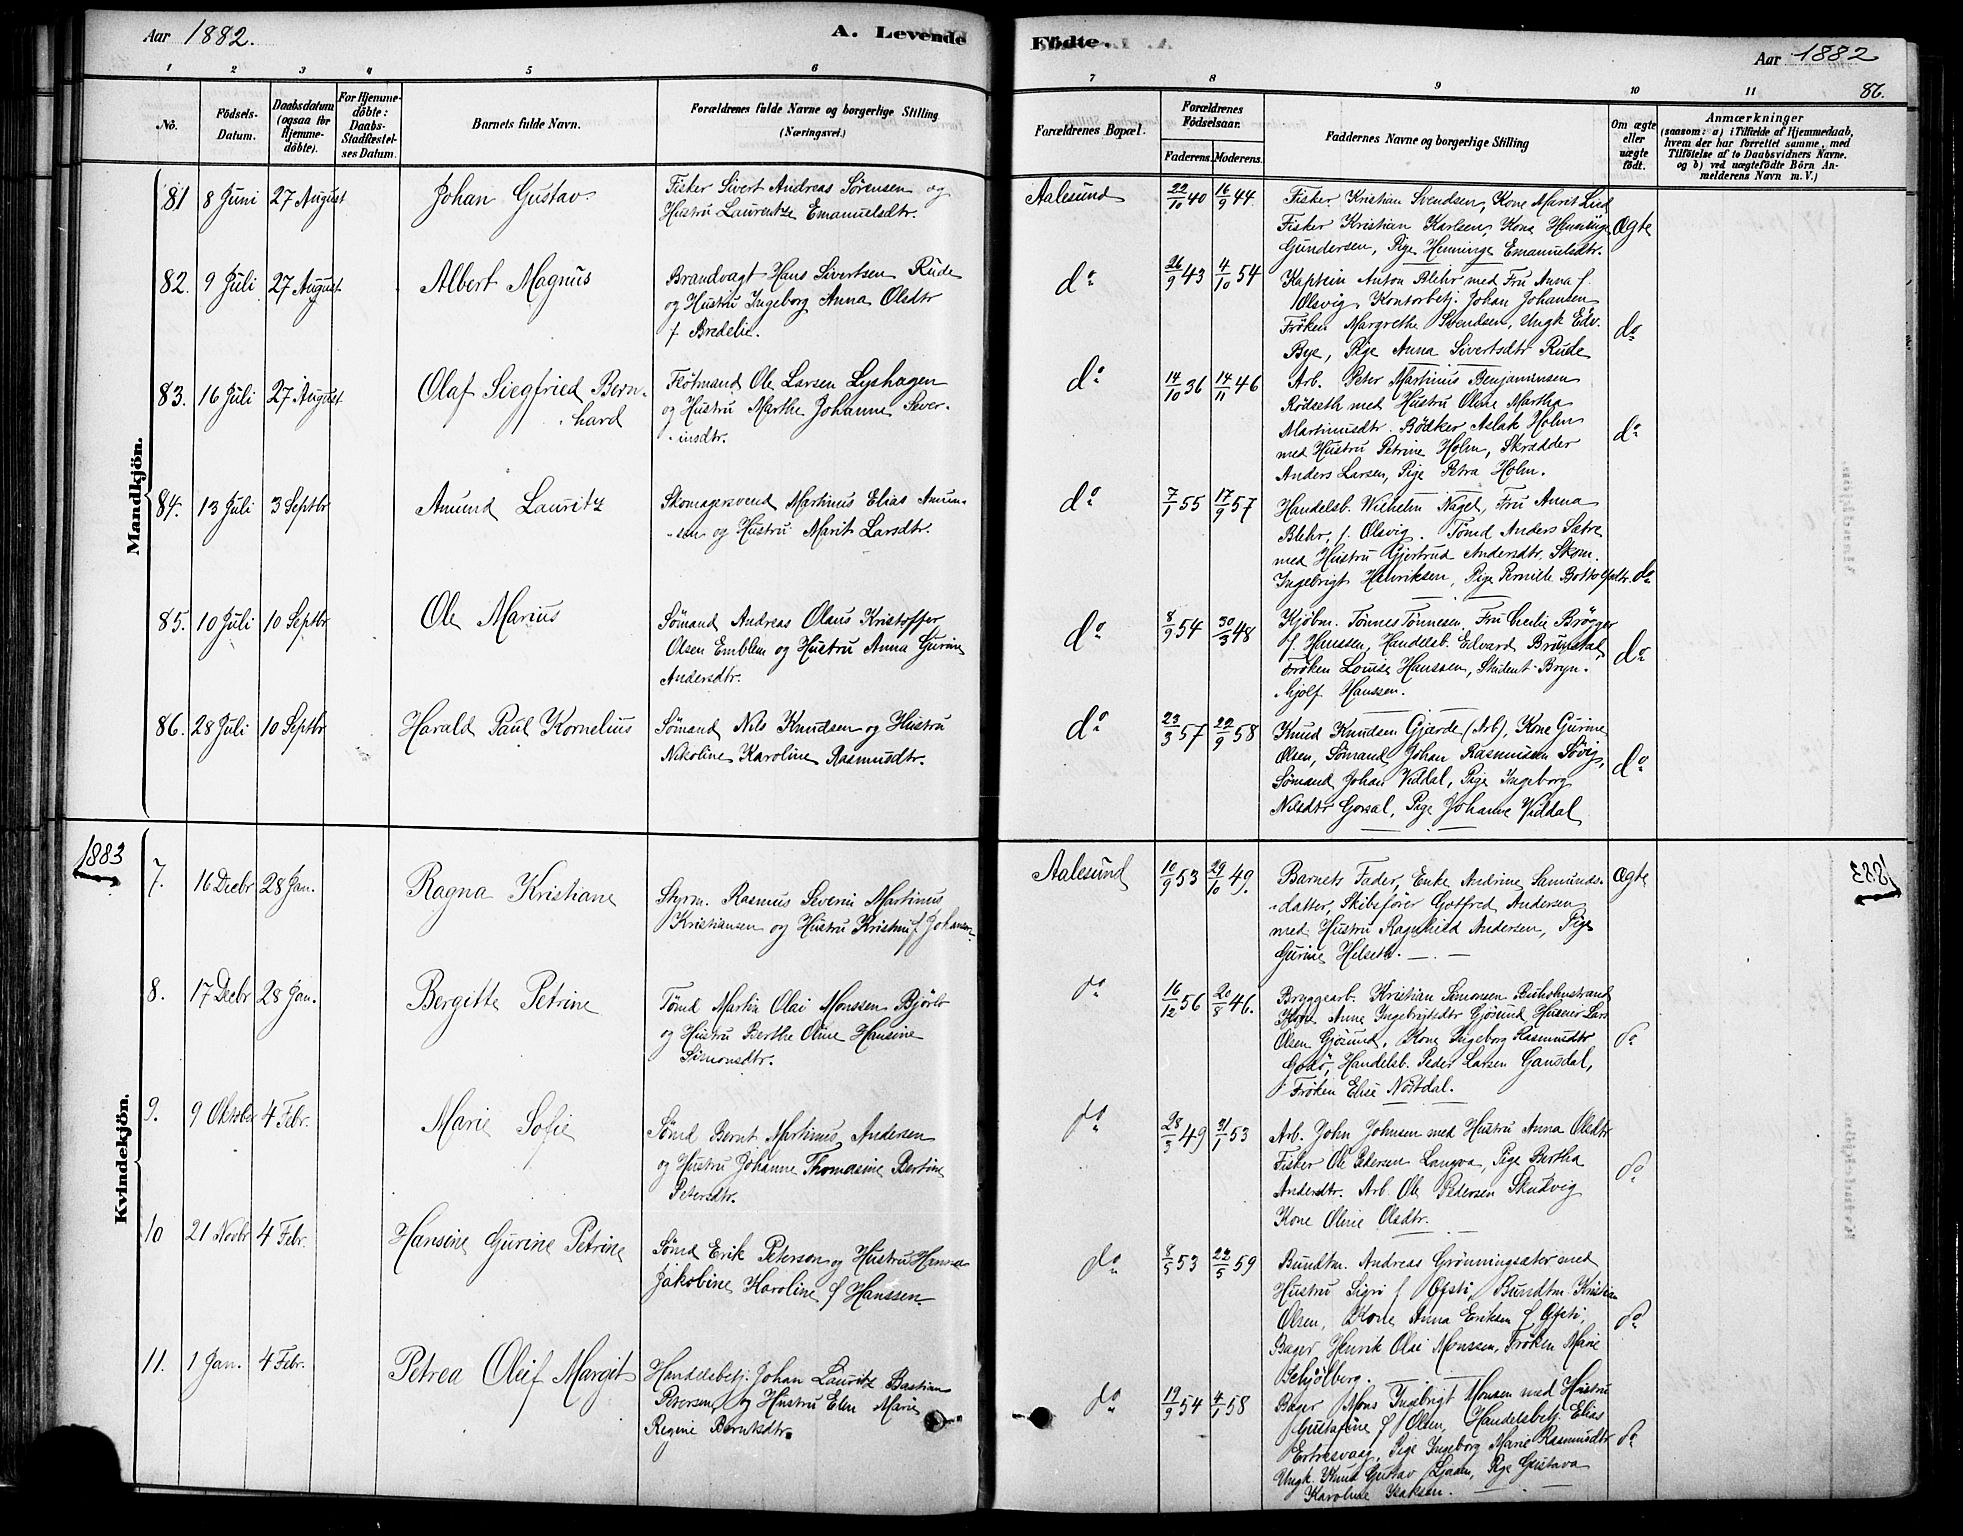 Aar 1882.
A. Levende
1
2
3
4
5
6
No.
Födsels-
Datum.
Daabsdatum
(ogsaa for
Hjemme-
döbte).
For Hjemme-
döbte:
Daabs-
Stadfæstel-
ses Datum.
Barnets fulde Navn.
Forældrenes fulde Navne og borgerlige Stilling
(Næringsvei.)
Mandkjön.
81 8 Juni 27 August Johan Gustav
Fisker Sivert Andreas Sørensen og
Hustru Laurentze Emanuelsdtr.
82. 9 Juli 27 August Albert Magnus
Brandvagt Hans Sivertsen Rude
og Hustru Ingeborg Anna Olsdtr
f Bredelie.
83. 16 Juli 27 August Olaf Siegfried Bern-
hard
Flötmand Ole Larsen Lyshagen
og Hustru Marthe Johanne Sever-
insdtr.
84. 13 Juli 3 Septbr Amund Lauritz
Skomagersvend Martinus Elias Amun-
sen og Hustru Marit Larsdtr.
85. 10 Juli 10 Septbr Ole Marius
Sömand Andreas Olaus Kristoffer
Olsen Emblem og Hustru Anna Gurine
Andersdtr.
86. 28 Juli 10 Septbr Harald Paul Kornelius
Sömand Nils Knudsen og Hustru
Nikoline Karoline Rasmusdtr.
1883
Kvindekjön.
7. 16 Decbr 28 Jan. Ragna Kristiane
Styrm. Rasmus Severin Martinus
Kristiansen og Hustru Kristine f Johansen
8. 17 Decbr 28 Jan. Bergitte Petrine
Tömd Martin Olai Monssen Bjørlo
og Hustru Berthe Oline Hansine
Simonsdtr.
9. 9 Oktober 4 Febr. Marie Sofie
Sömd Bernt Martinus Andersen
og Hustru Johanne Thomasine Bertine
Petersdtr.
10 21 Novbr 4 Febr. Hansine Gurine Petrine
Sömd Erik Peterson og Hustru Hansa
Jakobine Karoline f Hanssen.
11. 1 Jan. 4 Febr. Petrea Oleif Margit
Handelsbetj. Johan Lauritz Bastian
Petersen, og Hustru Elen Marie
Regine Berntsdtr.
Födte.
Aar 1882
86.
7
8
9
10
11
Forældrenes Bopæl.
Forældrenes
Födselsaar.
Faderens.
Moderens.
Faddernes Navne og borgerlige Stilling
Om ægte
eller
uægte
födt.
Anmærkninger
(saasom: a) i Tilfælde af Hjemmedaab,
hvem der har forrettet samme, med
Tilföielse af to Daabsvidners Navne.
og b) ved uægtefödte Börn An-
melderens Navn m. V.)
Aalesund 22/10 40 16/9 44.
Fisker Kristian Svendsen, Kone Marit Lied
Fisker Kristian Karlsen, Kone Henrikke
Gundersen, Pige Henninge Emanuelsdtr.
Ægte
do 26/9 43 4/10 54
Kaptein Anton Blehr med Fru Anna f.
Olsvig, Kontorbetj. Johan Johansen
Frøken Margrethe Svendsen, Ungk Edv.
Bye, Pige Anna Sivertsdtr Rude
do
do 14/10 36 14/11 46
Arb. Peter Martinus Benjaminsen
Rödseth med Hustru Oline Martha
Martinusdtr. Bödker Aslak Holm
med Hustru Petrine Holm, Skrædder
Anders Larsen, Pige Petra Holm.
do
do 7/1 55 17/9 57
Handelsb. Wilhelm Nagel, Fru Anna
Blehr, f. Olsvig. Tömd Anders Sætre
med Hustru Gjertrud Andersdtr. Skom.
Ingebrigt Henriksen, Pige Pernille Bottolfsdtr.
do
do 8/9 54 30/3 48
Kjöbm. Tönnes Tönnesen, Fru Cecilie Brögger
f. Hanssen, Handelsb. Edvard Brunstad,
Frøken Louise Hanssen, Student Bryn-
hjolf Hanssen.
do
do 23/3 57 22/9 58
Knud Knudsen Gjærde (Arb), Kone Gurine
Olsen, Sömand Johan Rasmussen Sövig,
Sömand Johan Viddal, Pige Ingeborg
Nilsdtr Gorsal, Pige Johanne Viddal
do
1883
Aalesund 10/9 53 29/10 49.
Barnets Fader, Enke Andrine Samunds-
datter, Skibsfører Gotfred Andersen
med Hustru Ragnhild Andersen, Pige
Gurine Helseth.
Ægte
do 16/12 56 20/8 46.
Bryggearb. Kristian Simonsen Buholmstrand
Kone Anne Ingebrigtsdtr Gjösund, Huseier Lars
Olsen Gjösund, Kone Ingeborg Rasmusdtr
Godö, Handelsb. Peder Larsen Gansdal,
Frøken Elise Nostdal.
do
do 28/3 49 31/1 53
Arb. John Johnsen med Hustru Anna Olsdtr
Fisker Ole Pedersen Langva, Pige Bertha
Andersdtr. Arb. Ole Pedersen Skutvig
Kone Oline Olsdtr.
do
do 8/5 53 22/5 59
Bundtm. Andreas Grönningsæter med
Hustru Sigri f Ofsti, Bundtm. Kristian
Olsen, Kone Anna Eriksen f Ofsti,
Bager Henrik Olai Monssen, Frøken Marie
Schjölberg.
do
do 19/9 54 4/1 58
Bager Mons Ingebrigt Monsen med Hustru
Gustafine f Olsen, Handelsbetj. Elias
Ertresvaag, Pige Ingeborg Marie Rasmusdtr
Ungk. Knud Gustav Ljaaen, Pige Gustava
Karoline Isaksen.
do